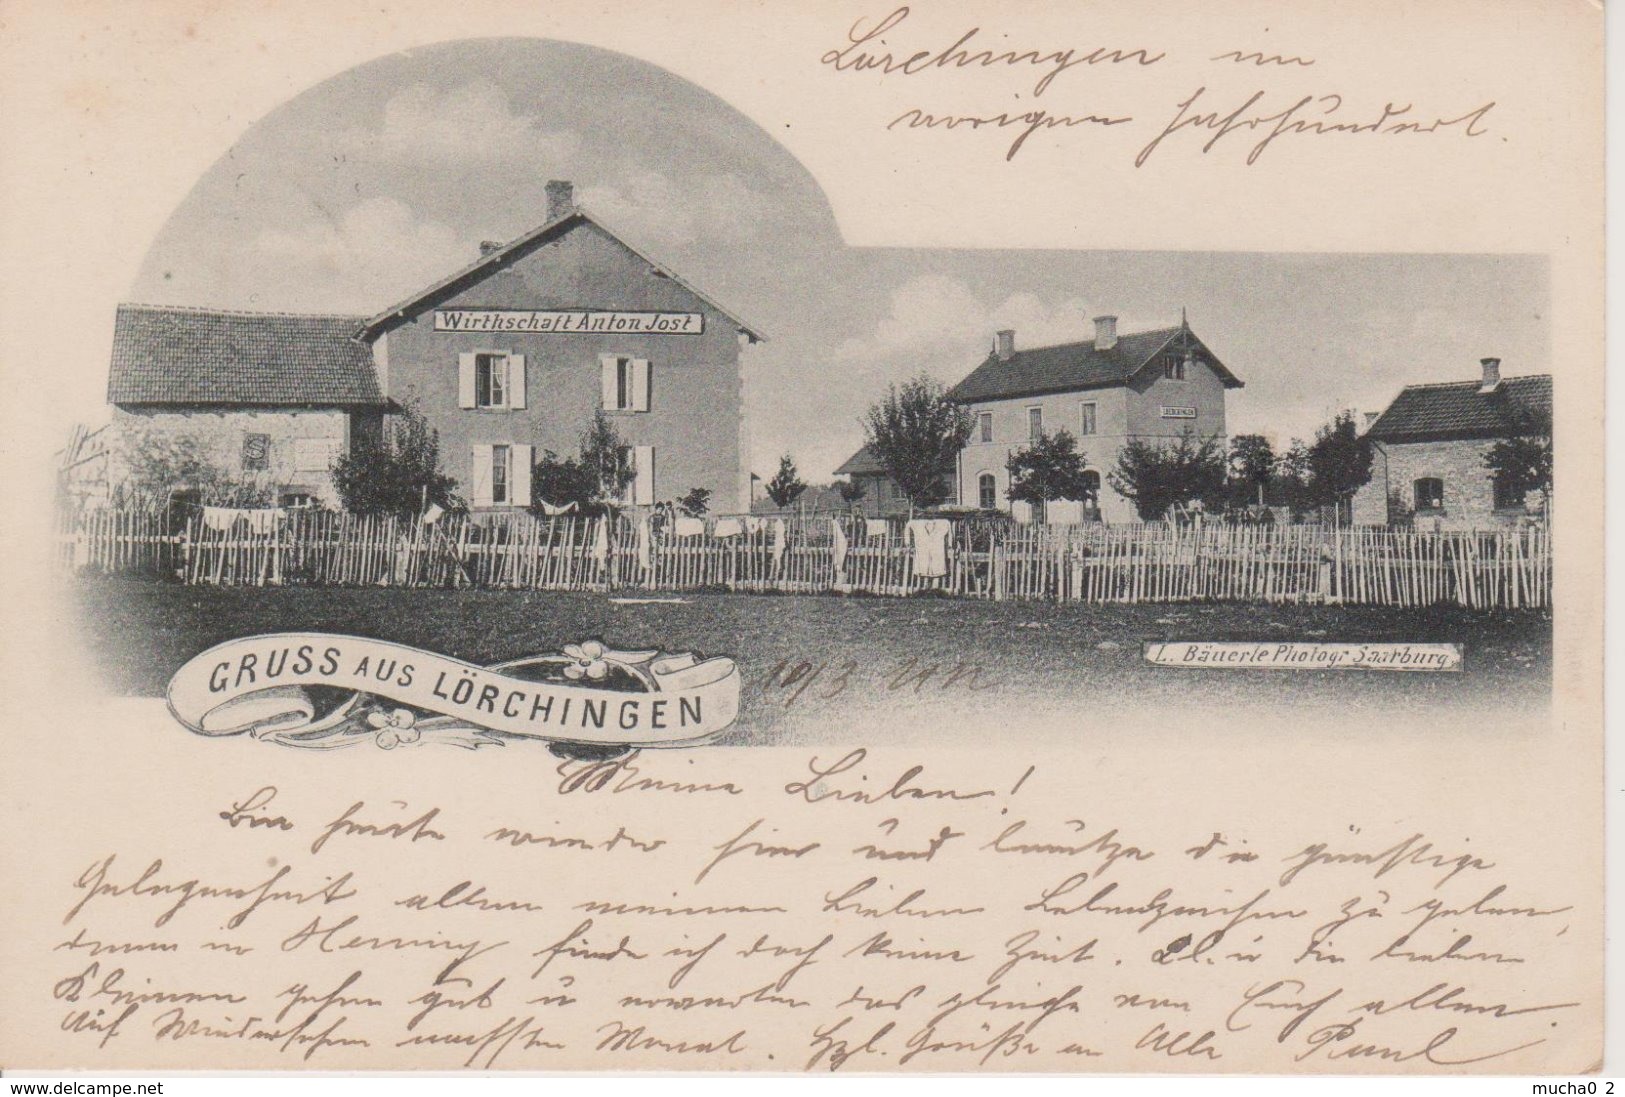 Lörchingen im
vorigen Jahrhundert.
Wirthschaft Anton Jost
LOERCHINGEN
L. Bäuerle Photogr Saarburg
GRUSS AUS LÖRCHINGEN
10/3
Meine Lieben!
Bin heute wieder hier und benütze die günstige
Gelegenheit allen meinen Lieben Lebenszeichen zu geben,
denn in finde ich doch keine Zeit. u die lieben
Kleinen gehen gut u erwarten das gleiche von Euch allen.
Auf Wiedersehen nächsten Monat. Hzl. Grüße an Alle Paul
www.delcampe.net
mucha0 2